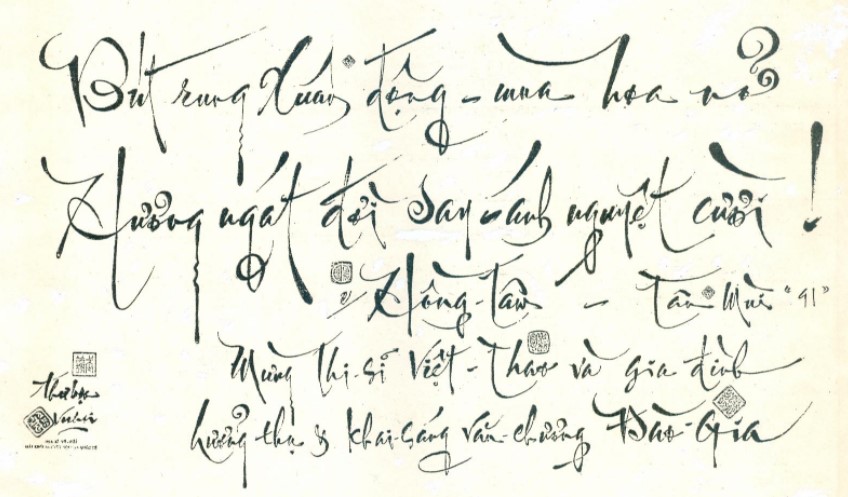 Bút rung Xuân động - mưa hoa nở
Hương ngát đời say - ánh nguyệt cười!
Hồng - Tâm - Tân Mùi "91"
Mừng Thi-Sĩ Việt - Thao và gia đình
hưởng thọ & khai-sáng văn-chương Đào-Gia